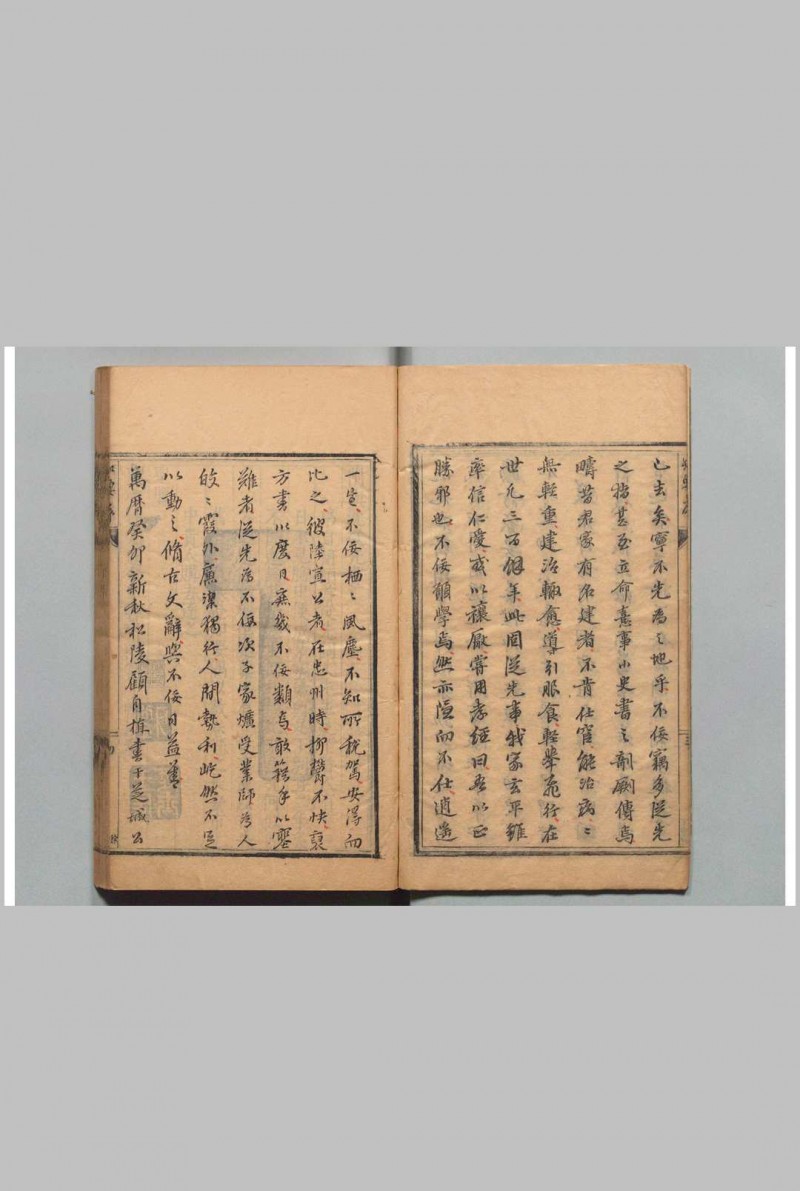 已去矣寧不先為之地乎不佞竊多從先
之指甚至立命熹事小史書之剞劂傳焉
疇昔君家有名建者不肯仕官能治病々
無輕重建治輒愈導引服食輕舉飛行在
世凡三百餘年此固從先事我家玄平雖
率信仁愛或以禳厭嘗用孝經曰吾以正
勝邪也不佞願學焉然亦隱而不仕逍遙
一壑不佞栖々風塵不知所稅駕安得而
比之彼陸宣公者在忠州時抑鬱不快裒
方書以度日庶幾不佞類焉敢藉手以塞
難者從先為不佞次子家爌受業師為人
皎々霞外廉潔獨行人間勢利屹然不足
以動之脩古文辭與不佞日益善
萬曆癸卯新秋松陵顧自植書于芝城公